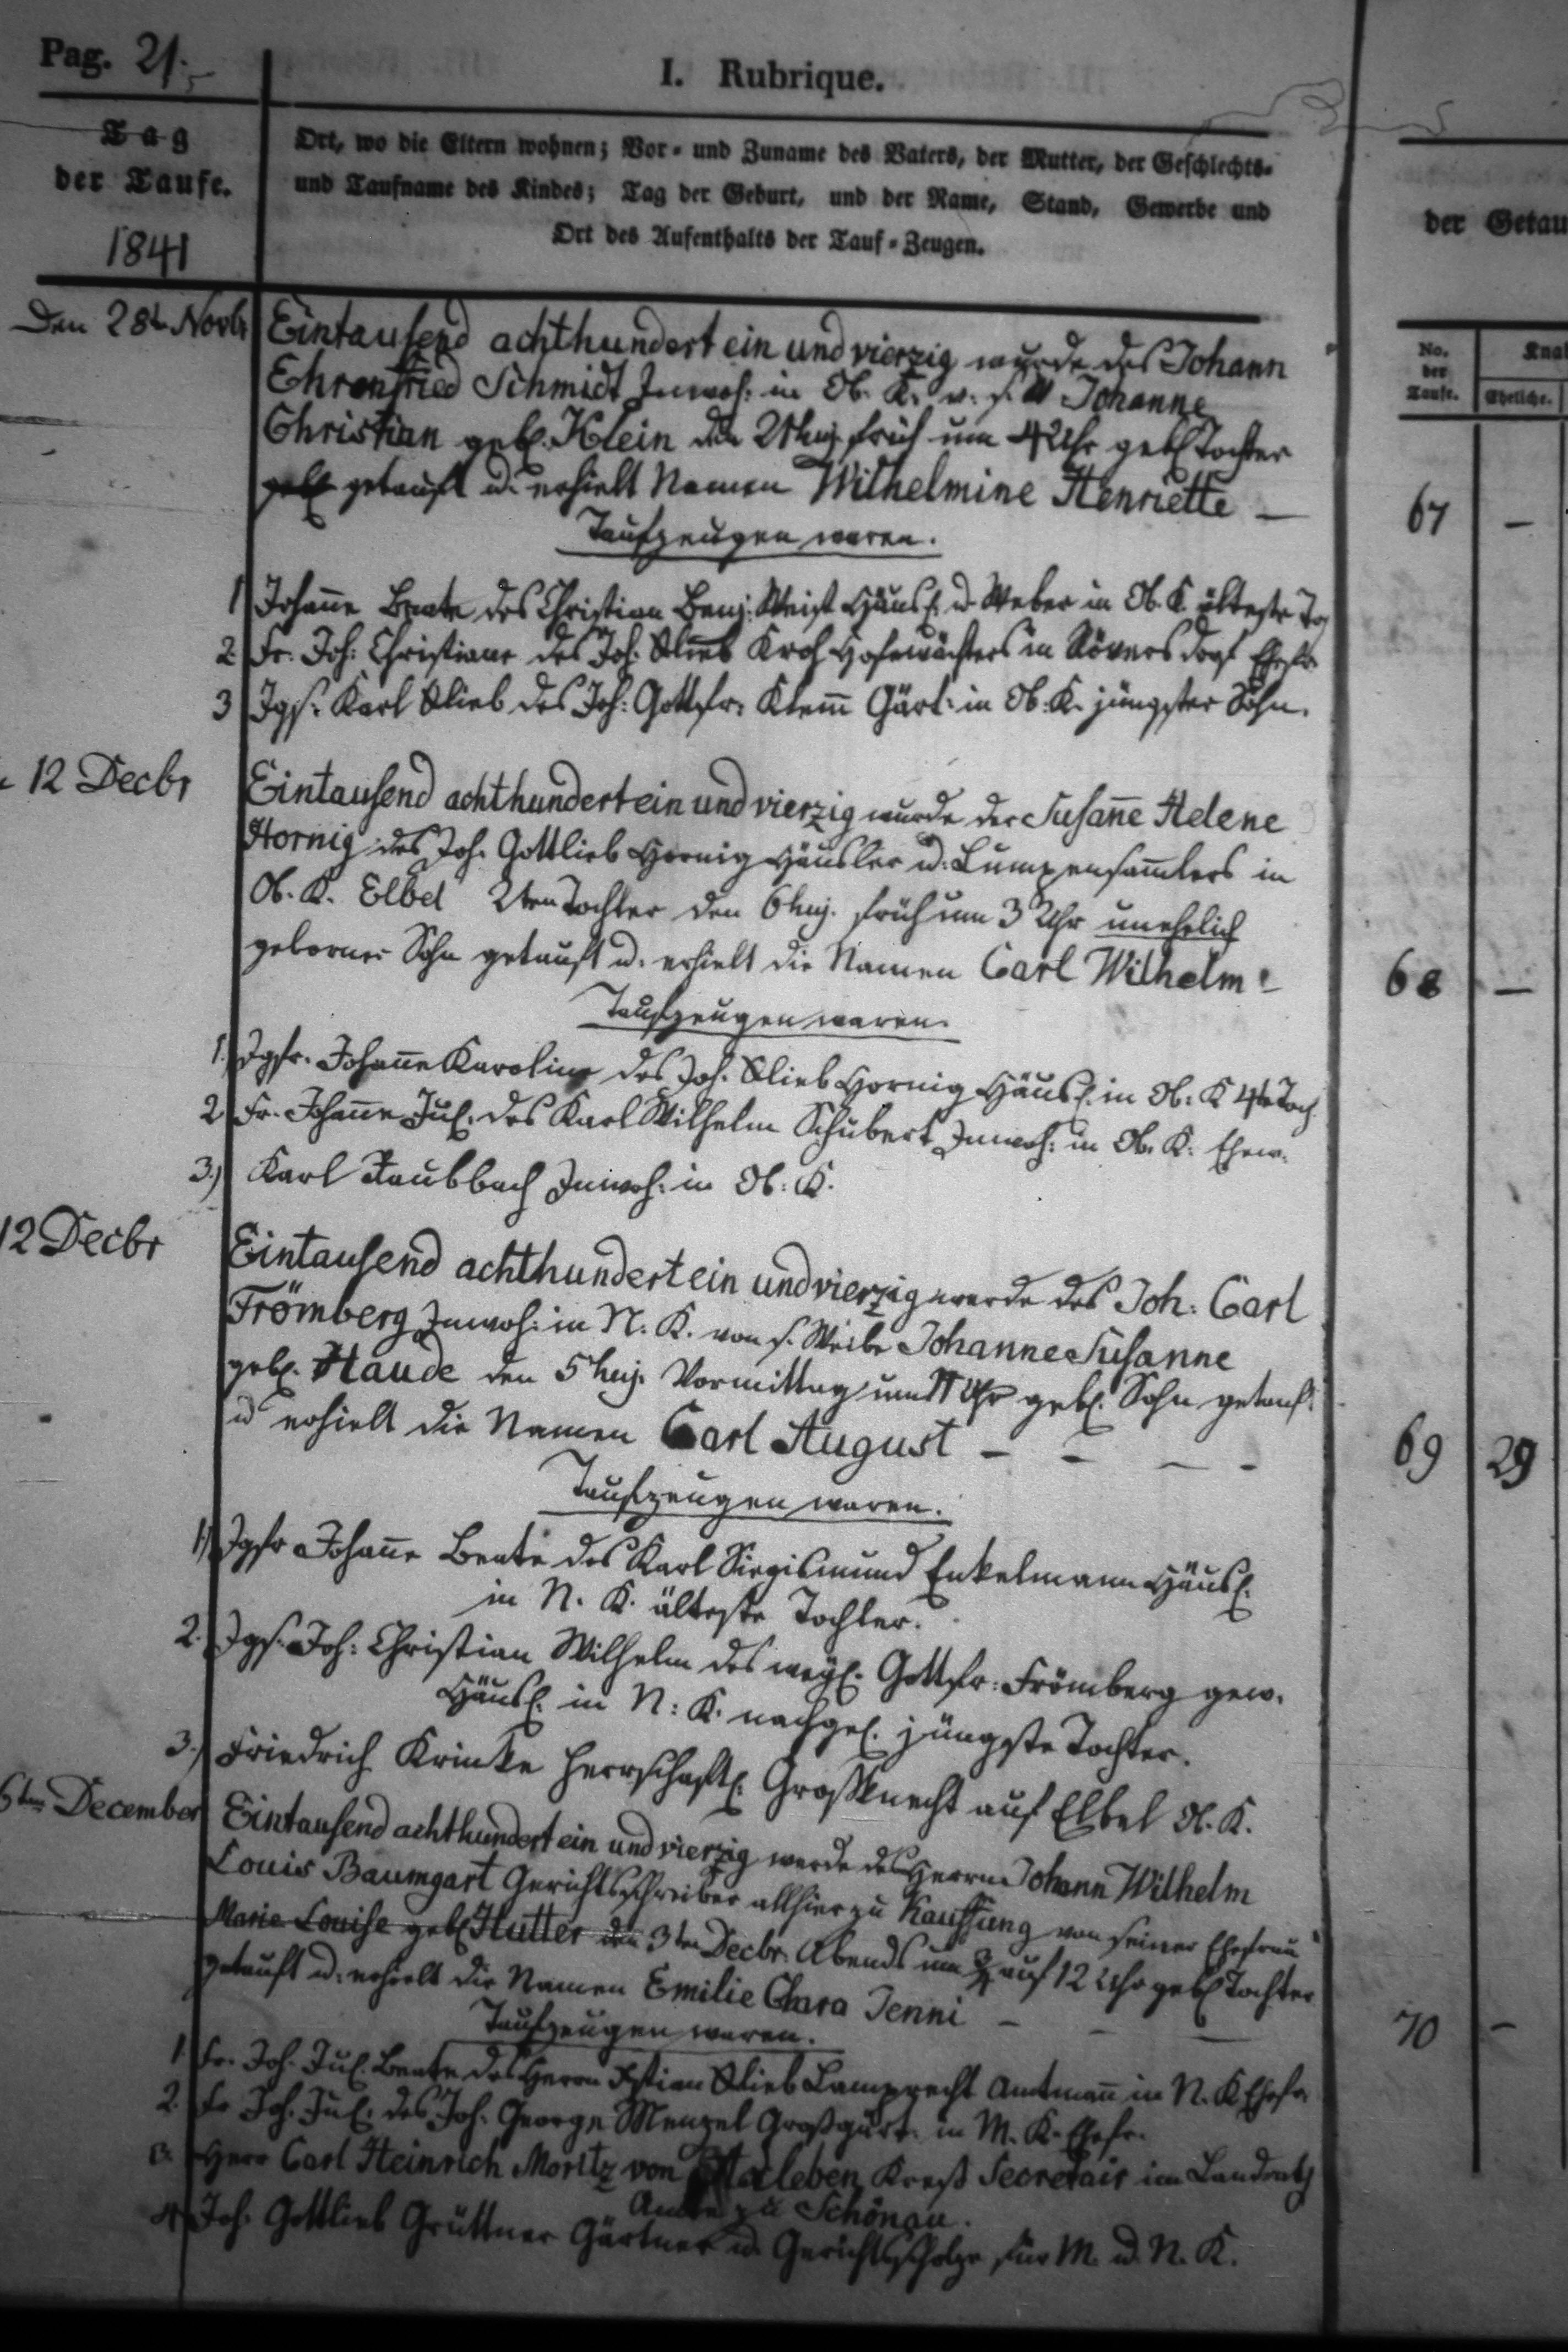 Pag. 21.
I. Rubrique.
Tag
der Taufe.
1841
Ort, wo die Eltern wohnen; Vor- und Zuname des Vaters, der Mutter, der Geschlechts-
und Taufname des Kindes; Tag der Geburt, und der Name, Stand, Gewerbe und
Ort des Aufenthalts der Tauf-Zeugen.
der Getau
No. der Taufe.
Knab
Eheliche.
Den 28t Novbr Eintausend achthundert ein und vierzig wurde des Johann
Ehrenfried Schmidt Inwoh: in Ob. K. v. s. W Johanne
Christian geb. Klein den 21 huj. früh um 4 Uhr geb Tochter
getauft u. erhielt Namen Wilhelmine Henriette —
67 —
Taufzeugen waren.
1 Johañe Beate des Christian Benj. Weist Häusl. u. Weber in Ob. K. älteste To
2 Fr. Joh: Christiane des Joh. Glieb Kroh Hofewächters in Röversdorf Ehefr.
3 Jgs. Karl Glieb des Joh: Gottfr: Klem̃ Gärt: in Ob. K. jüngster Sohn.
12 Decbr Eintausend achthundert ein und vierzig wurde der Susañe Helene
Hornig des Joh. Gottlieb Hornig Häusler u. Lumpensam̃lers in
Ob. K. Elbel 2ten Tochter den 6 huj. früh um 3 Uhr unehelich
geborner Sohn getauft u. erhielt die Namen Carl Wilhelm
68 —
Taufzeugen waren.
1.) Jgfr. Johañe Karoline des Joh. Glieb Hornig Häusl. in Ob. K 4te Toch.
2. Fr. Johañe Jul. des Karl Wilhelm Schubert Inwoh: in Ob. K. Ehew.
3.) Karl Raubbach Inwoh: in Ob: K.
12 Decbr Eintausend achthundert ein und vierzig wurde des Joh: Carl
Frömberg Inwoh: in N. K. von s. Weibe Johanne Susanne
geb. Haude den 5 huj. Vormittag um 11 Uhr geb. Sohn getauf.
u erhielt die Namen Carl August — — — —
69 29
Taufzeugen waren.
1.) Jgfr Johañe Beate des Karl Siegismund Enkelmann Häusl.
in N. K. älteste Tochter.
2. Jgs. Joh: Christian Wilhelm des weyl. Gottfr: Frömberg gew.
Häusl. in N: K. nachgel. jüngste Tochter.
3.) Friedrich Krinke herrschaftl. Großknecht auf Elbel O. K.
6ten December Eintausend achthundert ein und vierzig wurde des Herrn Johann Wilhelm
Louis Baumgart Gerichtsschreiber allhier zu Kauffung von seiner Ehefrau
Marie Louise geb Hutter den 3ten Decbr. Abends um ¾ auf 12 Uhr geb Tochter
getauft u. erhielt die Namen Emilie Clara Jenni — — —
70 —
Taufzeugen waren.
1. Fr. Joh. Jul. Beate des Herrn Xstian Glieb Lamprecht Amtmañ in N. K Ehefr.
2. Fr Joh. Jul. des Joh. George Menzel Großgärt. in M. K. Ehefr.
3. Herr Carl Heinrich Moritz von Kreiß Secretair im Landrath
Amte zu Schönau.
4 Joh. Gottlieb Grüttner Gärtner u. Gerichtsscholze für M. u. N. K.